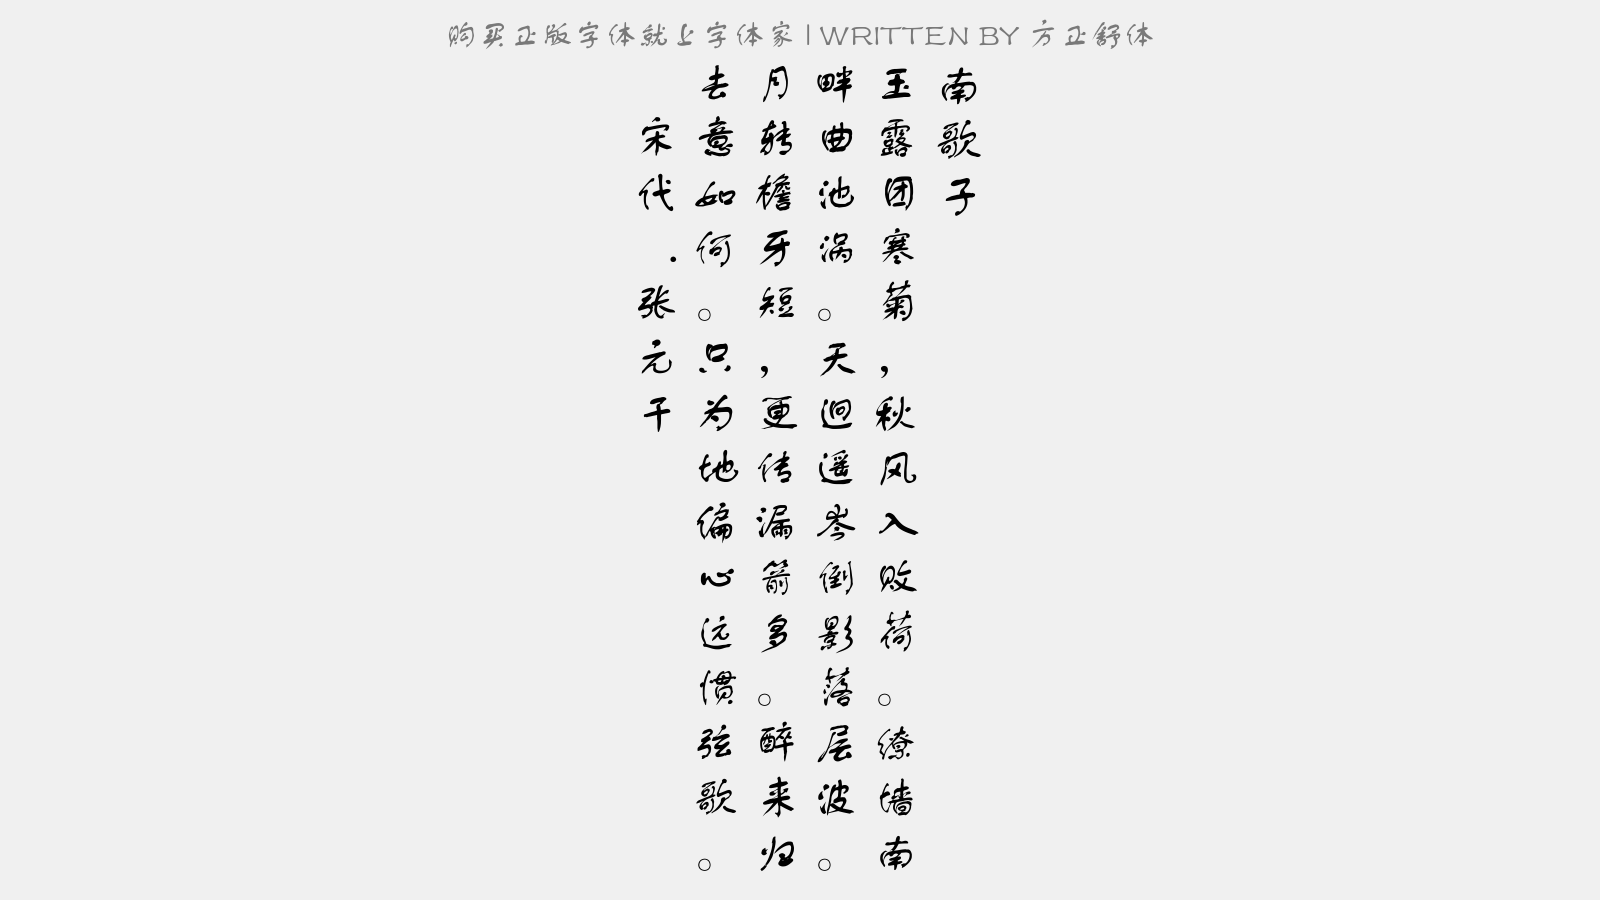 购买正版字体就上字体家 | WRITTEN BY 方正舒体
南歌子
玉露团寒菊，秋风入败荷。缭墙南
畔曲池涡。天迥遥岑倒影落层波。
月转檐牙短，更传漏箭多。醉来归
去意如何。只为地偏心远惯弦歌。
宋代.张元干